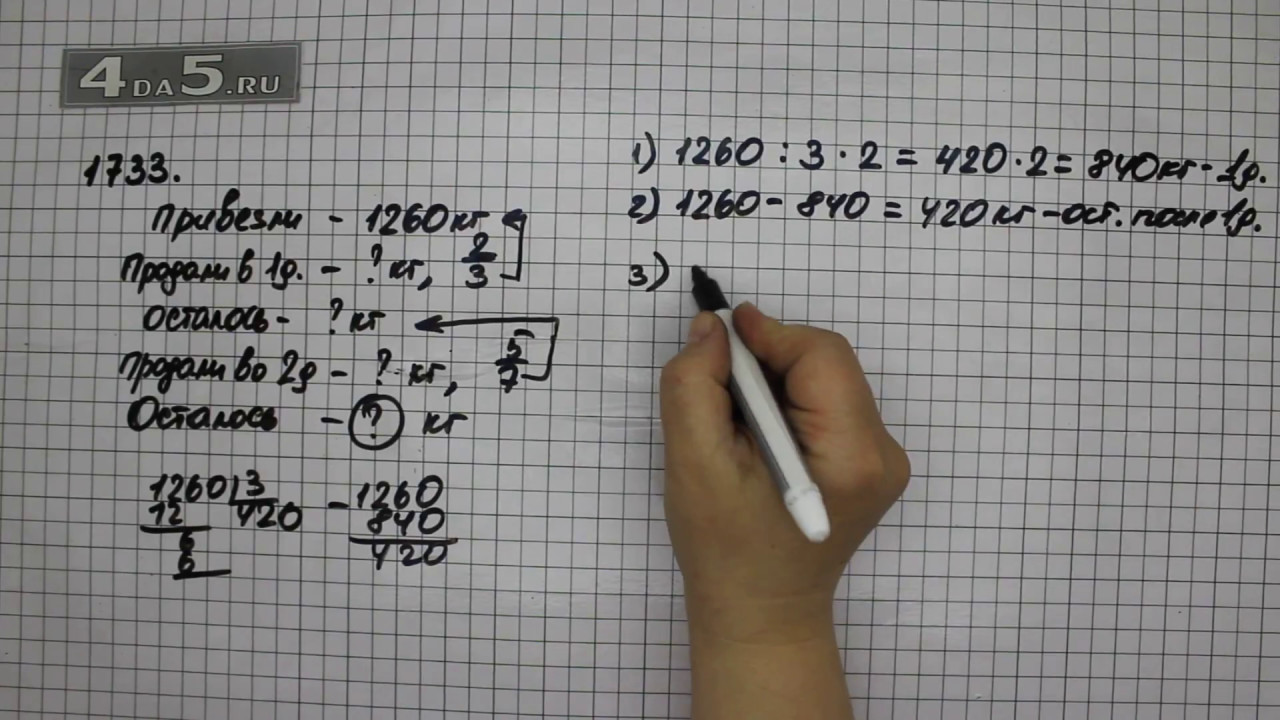 4DA5.RU
1733.
Привезли - 1260кг
Продали в 1д. - ? кг, 2/3
Осталось - ? кг
Продали во 2д - ? кг, 5/7
Осталось - ? кг
1260 3
12 420
6
6
- 1260
840
420
1) 1260 : 3 · 2 = 420 · 2 = 840кг - 1д.
2) 1260 - 840 = 420кг - ост. после 1д.
3)